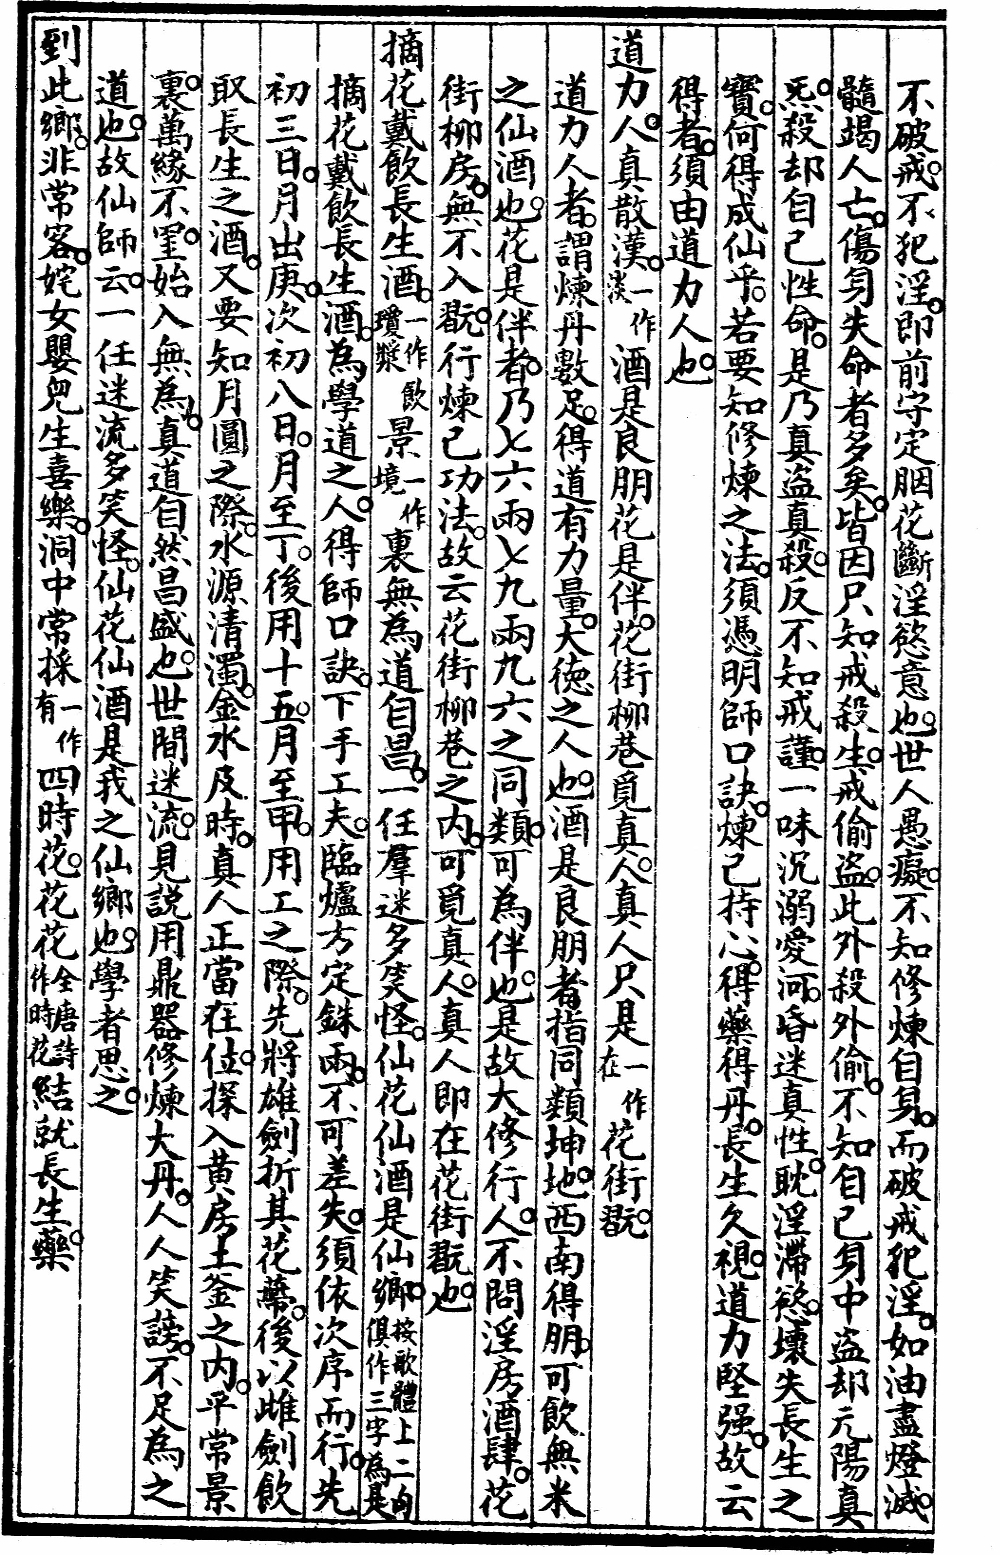 不破戒不犯淫即前守定胭花斷淫慾意也世人愚癡不知修煉自身而破戒犯淫如油盡燈滅
髓竭人亡傷身失命者多矣皆因只知戒殺生戒偷盜此外殺外偷不知自己身中盜却元陽真
炁殺却自己性命是乃真盜真殺反不知戒謹一味沉溺愛河昏迷真性耽淫滯慾壞失長生之
寶何得成仙乎若要知修煉之法須憑明師口訣煉己持心得藥得丹長生久視道力堅强故云
得者須由道力人也
道力人真散漢一作淡酒是良朋花是伴花街柳巷覓真人真人只是一作在花街翫
道力人者謂煉丹數足得道有力量大德之人也酒是良朋者指同類坤地西南得朋可飲無米
之仙酒也花是伴者乃七六兩七九兩九六之同類可為伴也是故大修行人不問淫房酒肆花
街柳房無不入翫行煉己功法故云花街柳巷之内可覓真人真人即在花街翫也
摘花戴飲長生酒一作飲瓊漿景一作境裏無為道自昌一任羣迷多笑怪仙花仙酒是仙鄉按歌體上二句俱作三字為是
摘花戴飲長生酒為學道之人得師口訣下手工夫臨爐方定銖兩不可差失須依次序而行先
初三日月出庚次初八日月至丁後用十五月至甲用工之際先將雄劍折其花蘂後以雌劍飲
取長生之酒又要知月圓之際水源清濁金水及時真人正當在位探入黄房土釜之内平常景
裏萬緣不罣始入無為真道自然昌盛也世間迷流見説用鼎器修煉大丹人人笑謗不足為之
道也故仙師云一任迷流多笑怪仙花仙酒是我之仙鄉也學者思之
到此鄉非常客姹女嬰兒生喜樂洞中常採一作有四時花花花全唐詩作時花結就長生藥